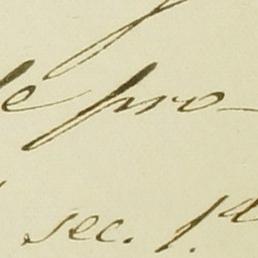 le pro-
sec. 1.d